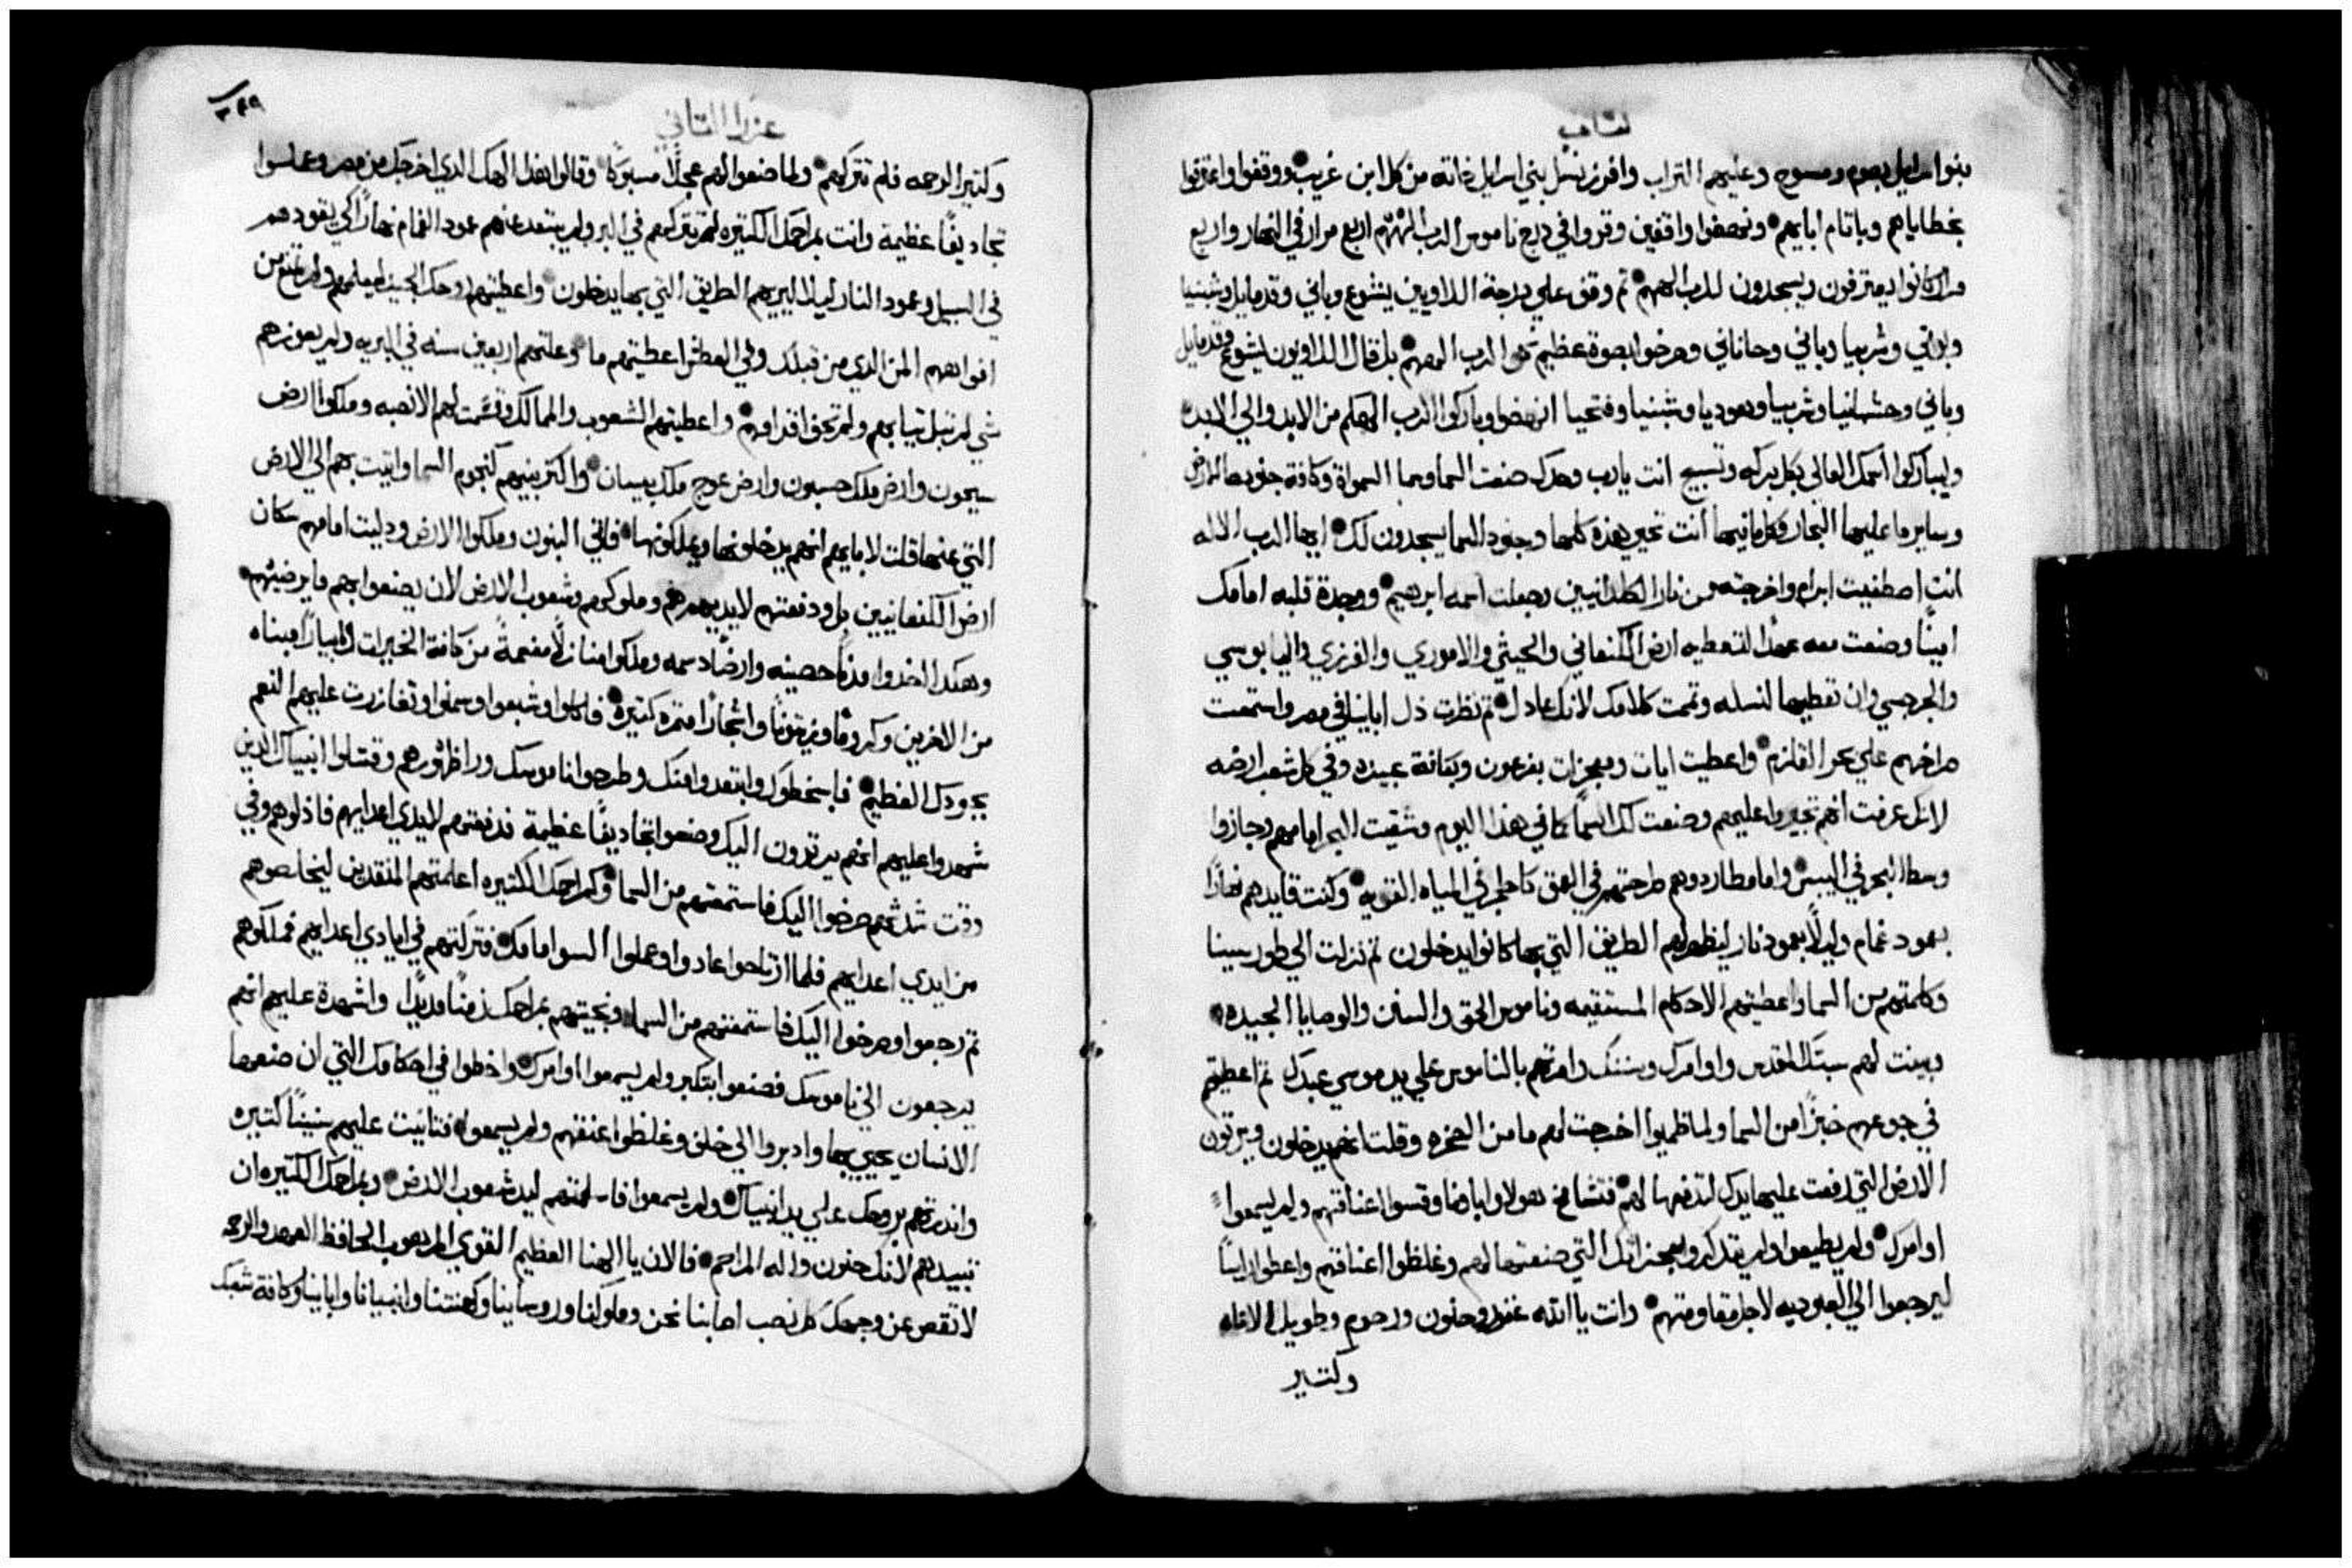 كتاب
بنوا اسرايل بصوم ومسوح وعليهم التراب وافرز نسل بني اسرايل ذاته من كل ابن غريب ووقفوا واعترفوا
بخطاياهم وباتام ابايهم ونهضوا واقفين وقروا في درج ناموس الرب الههم اربع مرار في النهار واربع
مرار كانوا يعترفون ويسجدون للرب الههم تم وقف علي درجة اللاويين يشوع وباني وقدمايل وشبنيا
وبواني وشربيا وباني وحاناني وصرخوا بصوة عظيم نحو الرب الههم بل قال اللاويون يشوع وقدمايل
وباني وحشبانيا وشربيا وهوديا وشبنيا وفتحيا انهضوا وباركوا الرب الهكم من الابد والي الابد
وليباركوا اسمك العالي بكل بركه وتسبيح انت يا رب وحدك صنعت السما وسما السمواة وكافة جنودها الارض
وساير ما عليها البحار وكلما فيها انت تحيي هذه كلها وجنود السما يسجدون لك ايها الرب الاله
انت اصطفيت ابرام واخرجته من نار الكلدانيين وجعلت اسمه ابرهيم ووجدة قلبه امامك
امينًا وصنعت معه عهدًا لتعطيه ارض الكنعاني والحيثي والاموري والفرزي واليابوسي
والجرجسي وان تعطيها لنسله وتممت كلامك لانك عادل تم نظرت ذل اباينا في مصر واستمعت
صراخهم علي بحر القلزم واعطيت ايات ومعجزات بفرعون وبكافة عبيده وفي كل شعب ارضه
لانك عرفت انهم تجبروا عليهم وصنعت لك اسمًا كما في هذا اليوم وشقيت البحر امامهم وجازوا
وسط البحر في اليبس واما مطاردوهم طرحتهم في العمق كالحجر في المياه القويه وكنت قايدهم نهارًا
بعمود غمام وليلًا بعمود نار ليظهر لهم الطريق التي بها كانوا يدخلون تم نزلت الي طور سينا
وكلمتهم من السما واعطيتهم الاحكام المستقيمه وناموس الحق والسنن والوصايا الجيده
وبينت لهم سبتك المقدس واوامرك وسننك وامرتهم بالناموس علي يد موسي عبدك تم اعطيتهم
في جوعهم خبزًا من السما ولما ظميوا اخرجت لهم ما من الصخره وقلت انهم يدخلون ويرتون
الارض التي رفعت عليها يدك لتدفعها لهم فتشامخ هولا وابانا وقسوا اعناقهم ولم يسمعوا
اوامرك ولم يطيعوا ولم يتذكروا معجزاتك التي صنعتها لهم وغلظوا اعناقهم واعطوا راسًا
ليرجعوا الي العبوديه لاجل مقاومتهم وانت يا الله غفور وحنون ورحوم وطويل الاناه
وكتير
٢٤٩
عزرا التاني
وكتير الرحمه فلم تتركهم ولما صنعوا لهم عجلًا مسبوكًا وقالوا هذا الهك الذي اخرجك من مصر وعملوا
تجاديفًا عظيمة وانت بمراحمك الكتيره لم تتركهم في البر ولم يبتعد عنهم عمود الغمام نهارًا كي يقودهم
في السبيل وعمود النار ليلًا ليريهم الطريق التي بها يدخلون واعطيتهم روحك الجيد ليعلمهم ولم تمنع من
افواههم المن الذي من قبلك وفي العطش اعطيتهم ما وعلتهم اربعين سنه في البريه ولم يعوزهم
شي لم تبل تيابهم ولم تحف اقدامهم واعطيتهم الشعوب والممالك وقسمت لهم الانصبه وملكوا ارض
سيحون وارض ملك حسبون وارض عوج ملك بيسان واكترت بنيهم كنجوم السما واتيت بهم الي الارض
التي عنها قلت لابايهم انهم يدخلونها ويملكونها فاتي البنون وملكوا الارض ودليت امامهم سكان
ارض الكنعانيين بل ودفعتهم لايديهم هم وملوكهم وشعوب الارض لان يصنعوا بهم ما يرضيهم
وهكذا اخذوا مدنًا حصينه وارضًا دسمه وملكوا منازلًا مفعمةً من كافة الخيرات وابيارًا مبناه
من الاخرين وكرومًا وزيتونًا واشجارًا متمره كتيره فاكلوا وشبعوا وسمنوا وتغازرت عليهم النعم
بجودك العظيم فاسخطوك وابتعدوا منك وطرحوا ناموسك ورا ظهورهم وقتلوا انبياك الدين
شهدوا عليهم انهم يرتدون اليك وصنعوا تجاديفًا عظيمة فدفعتهم لايدي اعدايهم فاذلوهم وفي
وقت شدتهم صرخوا اليك فاستمعتهم من السما وكمراحمك الكتيره اعطيتهم المنقدين ليخلصوهم
من ايدي اعدايهم فلما ارتاحوا عادوا وعملوا السو امامك فتركتهم في ايادي اعدايهم فملكوهم
تم رجعوا وصرخوا اليك فاستمعتهم من السما ونجيتهم بمراحمك زمنًا مديدًا واشهدة عليهم انهم
يرجعون الي ناموسك فصنعوا بتكبر ولم يسمعوا اوامرك واخطوا في احكامك التي ان صنعها
الانسان يحيي بها وادبروا الي خلف وغلظوا عنقهم ولم يسمعوا فتانيت عليهم سنينًا كتيره
واندرتهم بروحك علي يد انبياك ولم يسمعوا فاسلمتهم ليد شعوب الارض وبمراحمك الكتيره لن
تبيدهم لانك حنون واله المراحم فالان يا الهنا العظيم القوي المرهوب الحافظ العهد والرحمه
لا تقص عن وجهك كل نصب اصابنا نحن وملوكنا وروساينا وكهنتنا وانبيانا واباينا وكافة شعبك